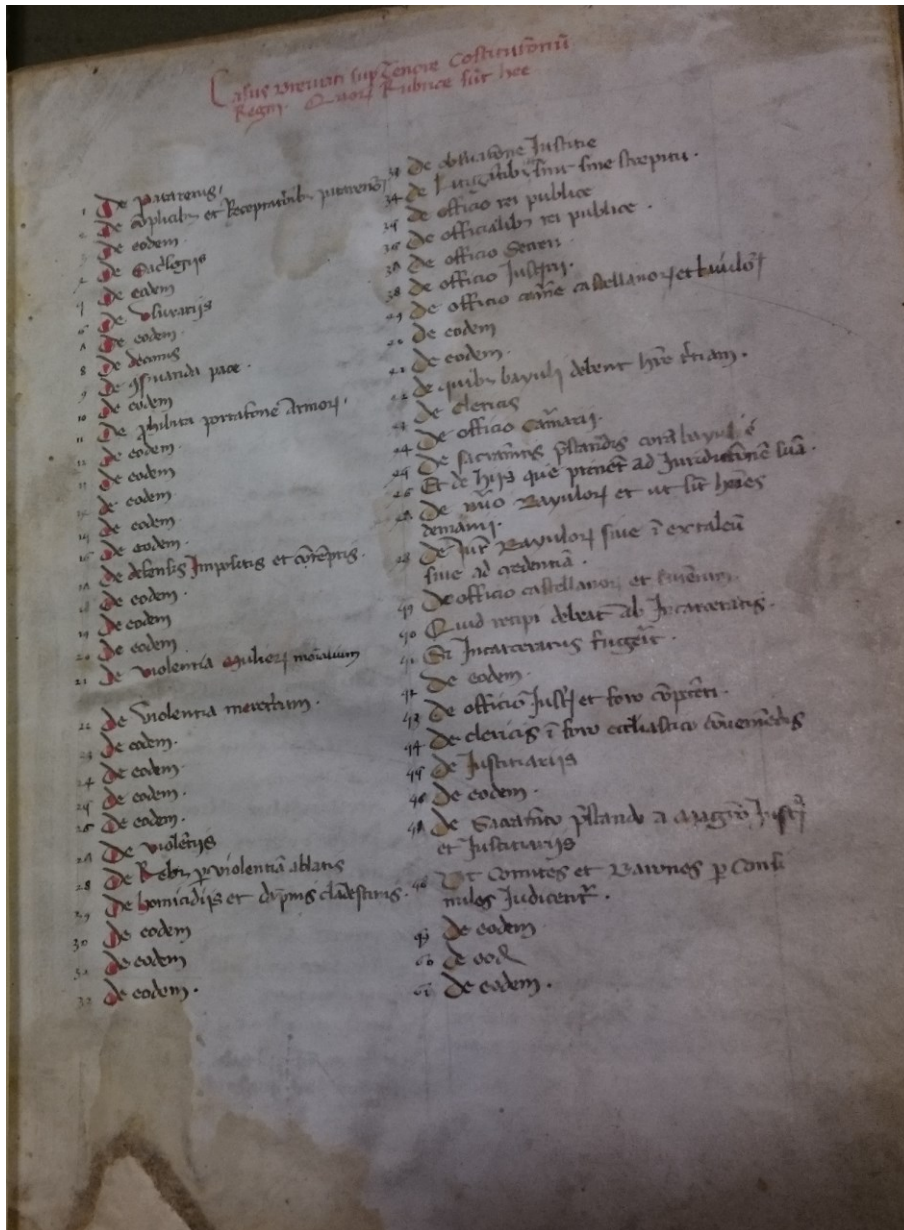 Casus breviati sup Tenore Costitutionũ
Regni. Quorꝝ Rubrice sũt hee
1 De Patarenis.
2 De cõplicibus et Receptatoribus patarenoꝝ
3 De eodem.
4 De Sacrlegiis
5 De eodem
6 De Usurariis
De eodem.
8 De decimis
9 De ꝯservanda pace.
10 De eodem
11 De ꝓhibita portatione Armoꝝ.
12 De eodem.
De eodem
De eodem
De eodem
16 De eodem.
De defensis Impositis et cõtẽptis.
18 De eodem.
19 De eodem
20 De eodem
21 De violentia Mulieꝝ
22 De Violentia meretricum.
23 De eodem.
24 De eodem
25 De eodem.
26 De eodem.
De violẽtiis
28 De Rebus ꝑ violentiã ablatis
29 De homicidiis et dãpnis clãdestinis.
30 De eodem
31 De eodem
32 De eodem.
De Justitie
34 De sine strepitu.
35 De officio rei publice
36 De officialibus rei publice.
De officio Secreti
38 De officio Justitii.
De officio castellanoꝝ et
De eodem
De eodem.
De quibus bayuli debent hr̃e
De clericis
44 De officio Camarii.
De sacramẽtis p̃standis corã bayul
Et de hiis que ptinẽt ad Juridictionẽ suã.
De nũo Bayuloꝝ et ut sĩt hoĩes
demanii.
De Bayuloꝝ sive ĩ extaleũ
sive ad credentiã.
De officio castellanoꝝ et
40 Quid recipi debeat ab Incarceratis.
41 Si Incarceratus fuggerit.
42 De eodem.
43 De officio Just et foro cõpetẽti.
44 De clericis ĩ foro eccliastico cõveniẽdis
45 De Justitiariis
46 De eodem.
De Sacramẽto p̃stando a Magr̃o Justi
et Justitiariis
Ut Comites et Barones ꝑ Consi
miles Judicentr.
De eodem.
50 De eod
51 De eodem.